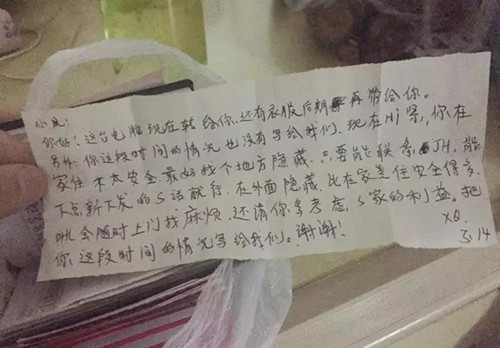 小良:
你好!这台电脑现在转给你,还有衣服后期再带给你。
另外:你这段时间的情况也没有写给我们,现在Hi紧,你在
家住不太安全,最好找个地方隐藏,只要能联系JH,能
下点新下发的S话就行,在外面隐藏,比在家居住安全得多,
DH会随时上门找麻烦,还请你多考虑S家的利益。把
你这段时间的情况写给我们。谢谢!
XQ.
3.14